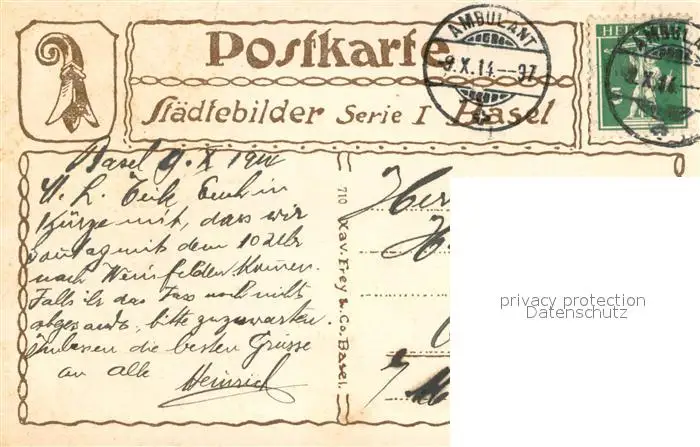 Postkarte
Städtebilder Serie I Basel
AMBULANT
9.X.14.--97
HELVETIA
5
AMBULANT
Basel 9. X 1914
M. L. Teile Euch in
Kürze mit, dass wir
Sonntag mit dem 10 Uhr
nach Weinfelden kommen.
Falls ihr das Fass noch nicht
abgesandt, bitte zuzuwarten.
Inzwischen die besten Grüsse
an alle Heinrich
710 Xav. Frey & Co. Basel.
Herr
privacy protection
Datenschutz